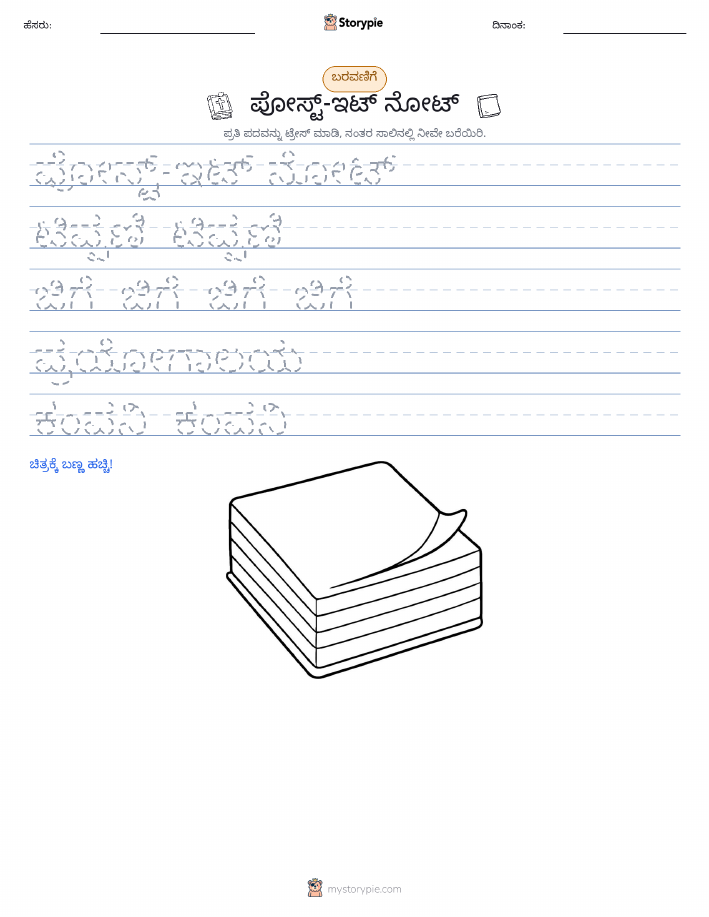 ಹೆಸರು:
Storypie
ದಿನಾಂಕ:
ಬರವಣಿಗೆ
ಪೋಸ್ಟ್-ಇಟ್ ನೋಟ್
ಪ್ರತಿ ಪದವನ್ನು ಟ್ರೇಸ್ ಮಾಡಿ, ನಂತರ ಸಾಲಿನಲ್ಲಿ ನೀವೇ ಬರೆಯಿರಿ.
ಪೋಸ್ಟ್-ಇಟ್ ನೋಟ್
ಟಿಪ್ಪಣಿ ಟಿಪ್ಪಣಿ
ಜಿಗಿ ಜಿಗಿ ಜಿಗಿ ಜಿಗಿ
ಪ್ರಯೋಗಾಲಯ
ಕಂಪನಿ ಕಂಪನಿ
ಚಿತ್ರಕ್ಕೆ ಬಣ್ಣ ಹಚ್ಚಿ!
mystorypie.com